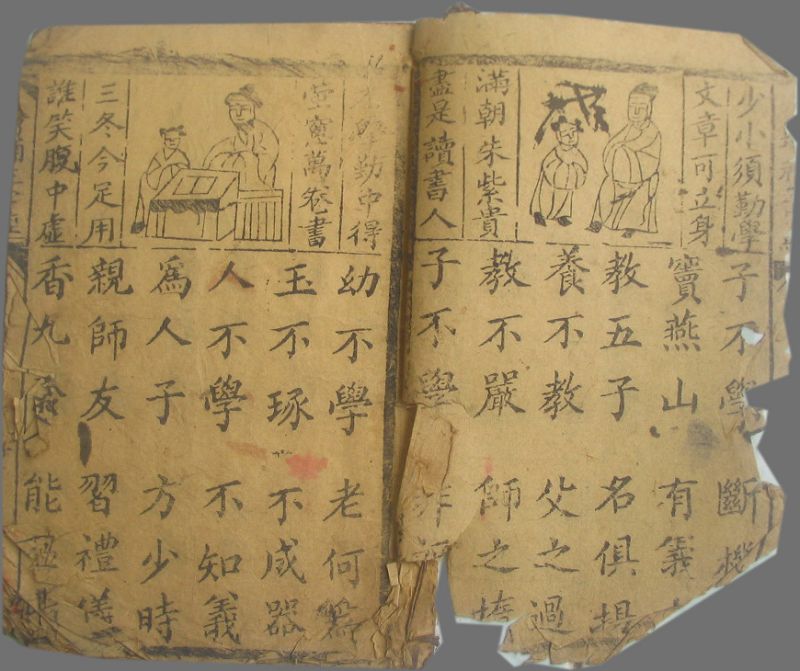 少小須勤學
文章可立身
滿朝朱紫貴
盡是讀書人
子不學 斷機
竇燕山 有義
教五子 名俱揚
養不教 父之過
教不嚴 師之
子不學 非
學勤中得
萬卷書
三冬今足用
誰笑腹中虛
幼不學 老何為
玉不琢 不成器
人不學 不知義
為人子 方少時
親師友 習禮儀
香九 能